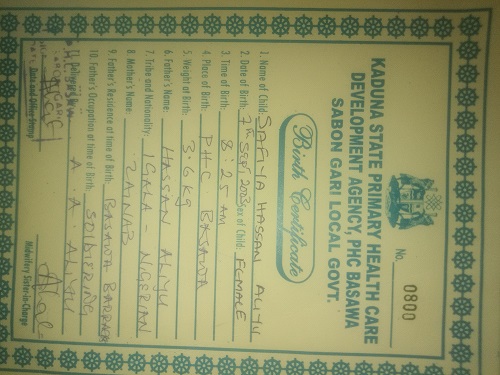 No. 0800
KADUNA STATE PRIMARY HEALTH CARE
DEVELOPMENT AGENCY, PHC BASAWA
SABON GARI LOCAL GOVT.
Birth Certificate
1. Name of Child: SAFIYA HASSAN ALIYU
2. Date of Birth: 7th SEPT, 2023 Sex of Child: FEMALE
3. Time of Birth: 8:25 AM
4. Place of Birth: PHC BASAWA
5. Weight of Birth: 3.6 kg
6. Father's Name: HASSAN ALIYU
7. Tribe and Nationality: IGALA - NIGERIAN
8. Mother's Name: ZAINAB
9. Father's Residence at time of Birth: BASAWA BARRACK
10. Father's Occupation at time of Birth: SOLDIERING
A. A. ALIYU
Date and Office Stamp
Midwifery Sister-in-Charge